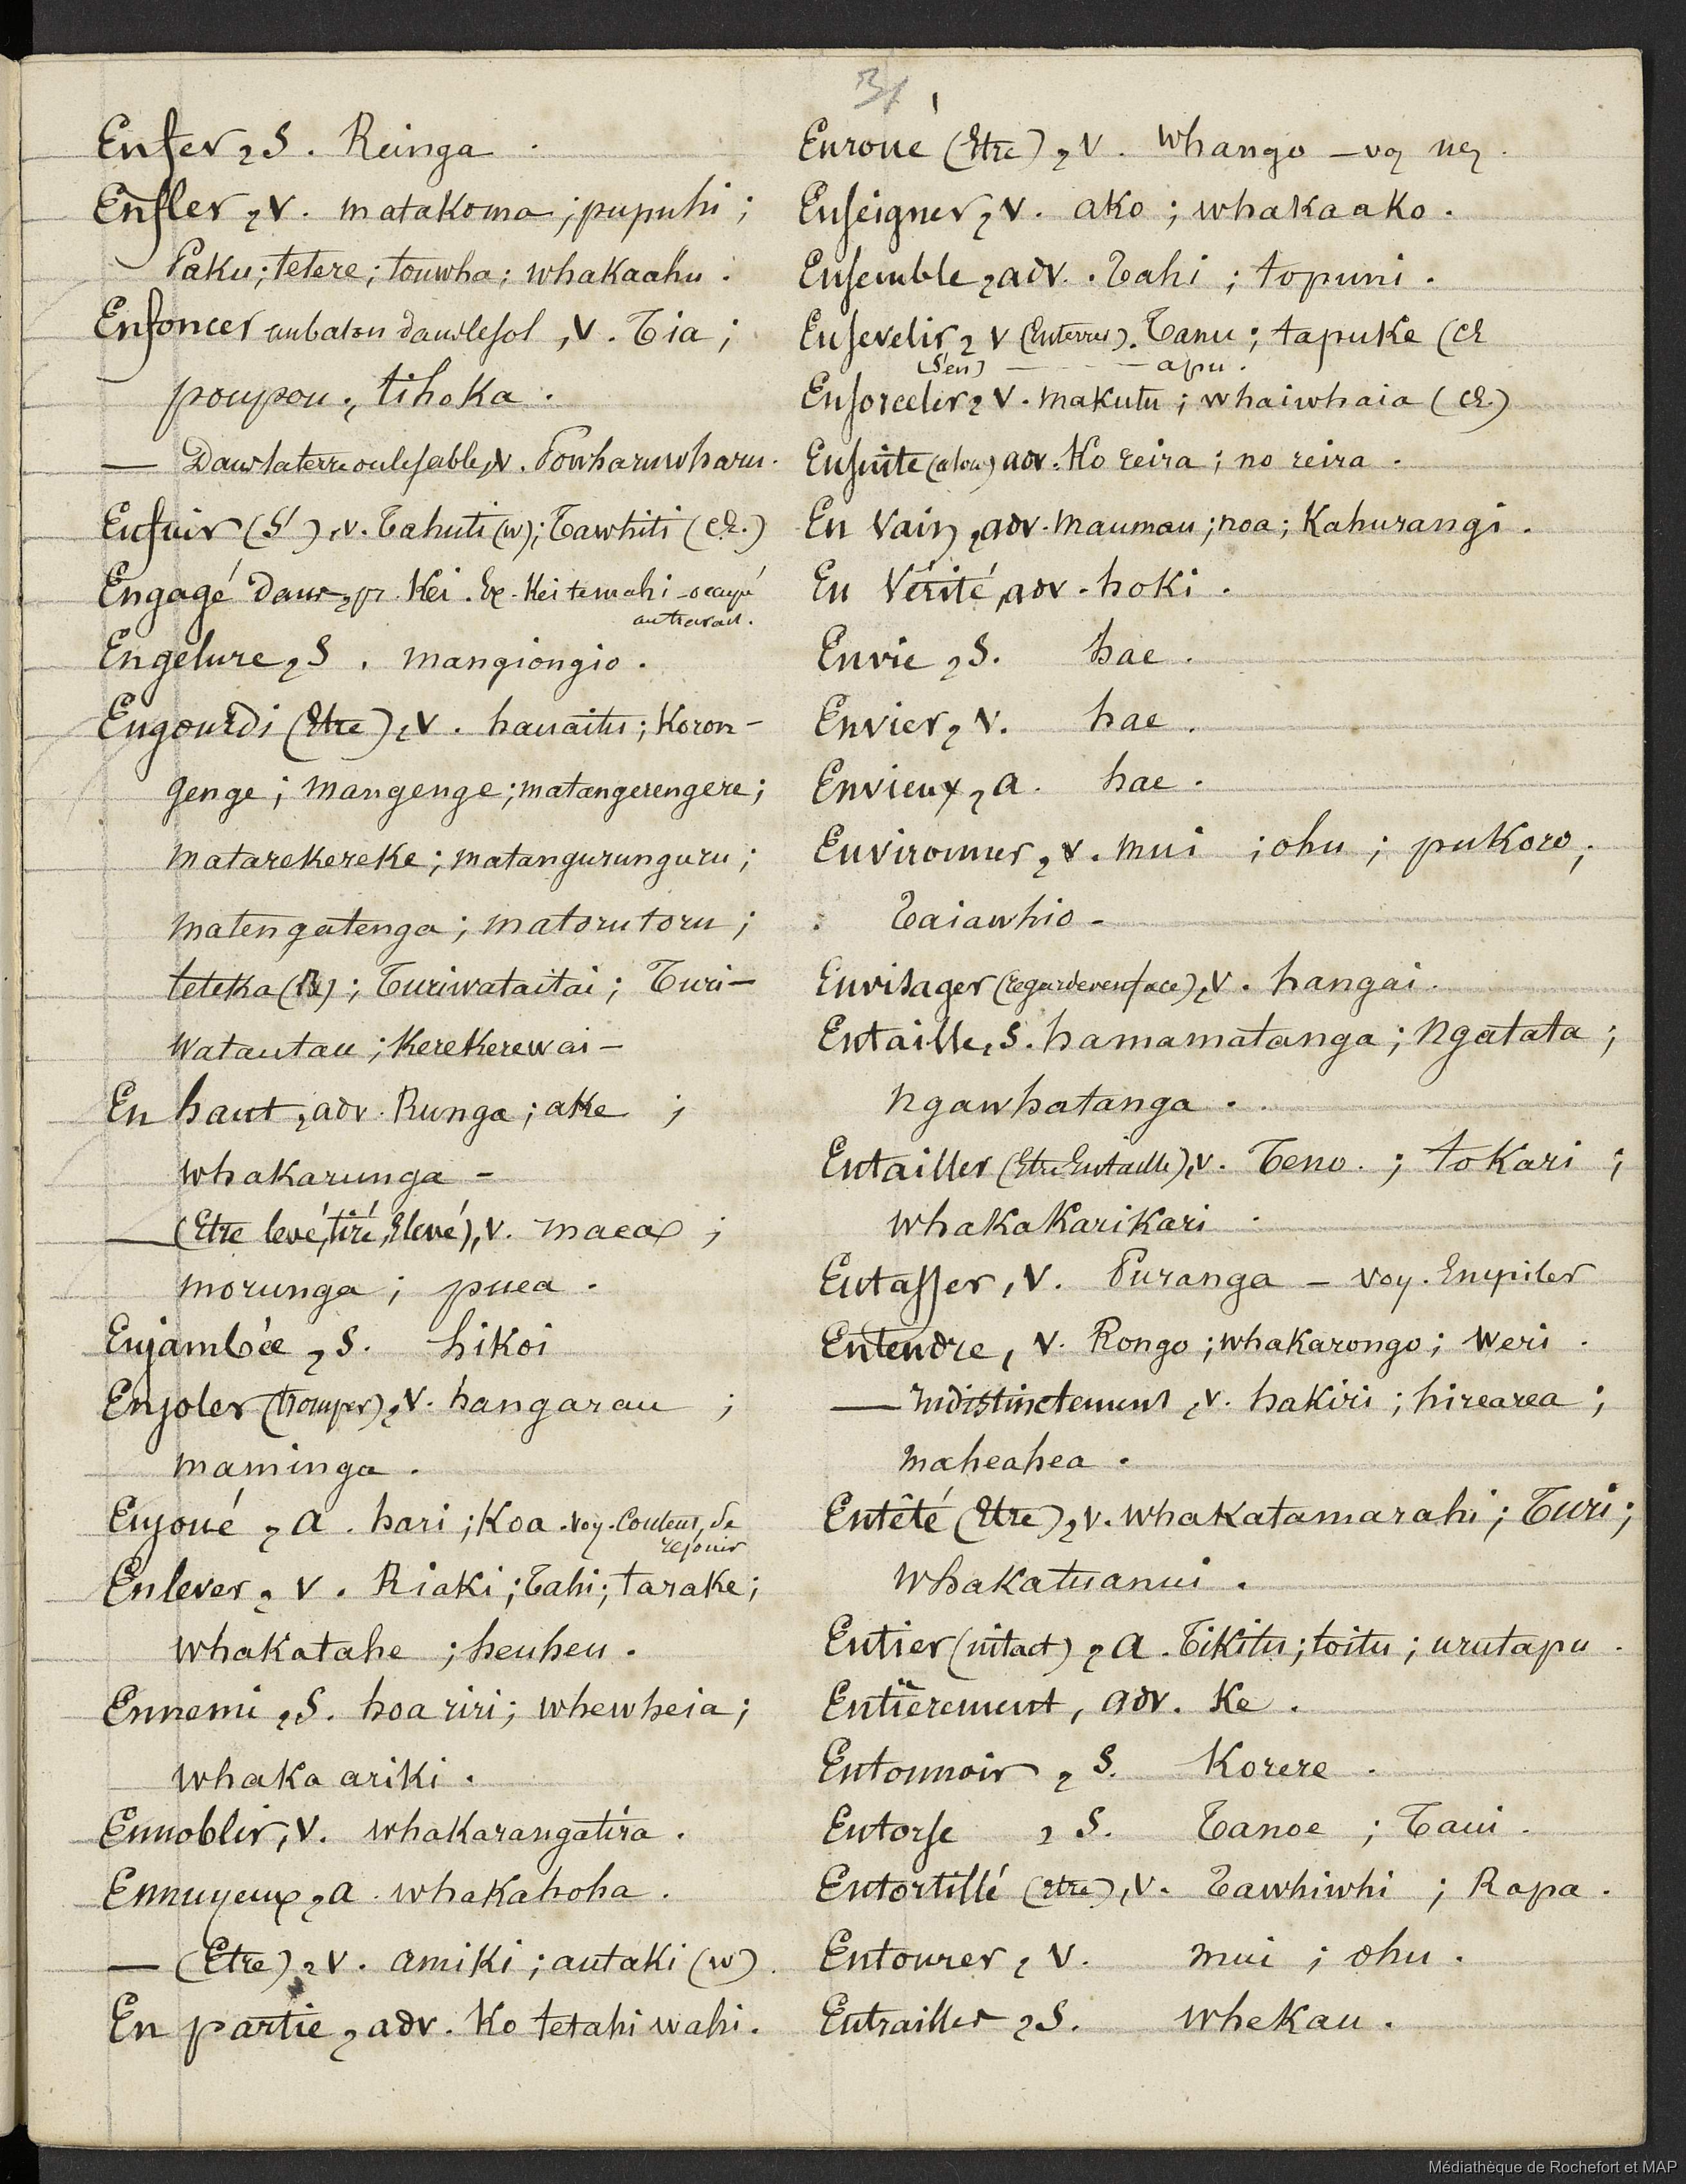 31
Enfer, S. Reinga.
Enfler, V. matakoma; pupuhi;
Paku; tetere; touwha; whakaahu.
Enfoncer un baton dans le sol, V. Tia;
poupou; tihoka.
— Dans la terre ou le sable, V. Powharuwharu.
Enfuir (S'), v. Tahuti (w); Tawhiti (Ch.)
Engagé dans, pr. Kei. Ex. Kei te mahi - occupé
au travail.
Engelure, S. mangiongio.
Engourdi (Etre), V. hauaitu; Koron-
genge; mangenge; matangerengere;
matarekereke; matangurunguru;
matengatenga; matorutoru;
teteka (R); Turiwataitai; Turi-
watautau; Kerekerewai -
En haut, adv. Runga; ake;
whakarunga -
— (Etre levé, tiré, Elevé), V. maea;
morunga; puea.
Enjambée, S. hikoi
Enjoler (tromper), V. hangarau;
maminga.
Enjoué, a. hari; Koa. voy. Content, Se
rejouir
Enlever, V. Riaki; Tahi; tarake;
whakatahe; heuheu.
Ennemi, S. hoa riri; whewheia;
whaka ariki.
Ennoblir, V. whakarangatira.
Ennuyeux, a. whakahoha.
— (Etre), V. amiki; autaki (w).
En partie, adv. Ko tetahi wahi.
Enroué (Etre), V. Whango -
Enseigner, V. ako; whakaako.
Ensemble, adv. Tahi; topuni.
Ensevelir, V (Enterrer). Tanu; tapuke (Ch
(S'en) - - - - apu.
Ensorceler, V. makutu; whaiwhaia (Ch.)
Ensuite (alors) adv. Ko reira; no reira.
En Vain, adv. maumau; noa; Kahurangi.
En Vérité, adv. hoki.
Envie, S. hae.
Envier, V. hae.
Envieux, a. hae.
Environner, V. mui; ohu; pukoro;
Taiawhio -
Envisager (regarder en face), V. hangai.
Entaille, S. hamamatanga; Ngatata;
ngawhatanga.
Entailler (Etre Entaillé), V. Teno.; toKari;
whakaKariKari.
Entasser, V. Puranga - voy. Empiler
Entendre, V. Rongo; whakarongo; Weri.
— Indistinctement, V. hakiri; hirearea;
maheahea.
Entêté (Etre), V. whakatamarahi; Turi;
whakatuanui.
Entier (intact), a. Tikitu; toitu; urutapu.
Entièrement, adv. Ke.
Entonnoir, S. Korere.
Entorse, S. Tanoe; Taui.
Entortillé (etre), V. Tawhiwhi; Rapa.
Entourer, V. mui; ohu.
Entrailles, S. whekau.
Médiathèque de Rochefort et MAP